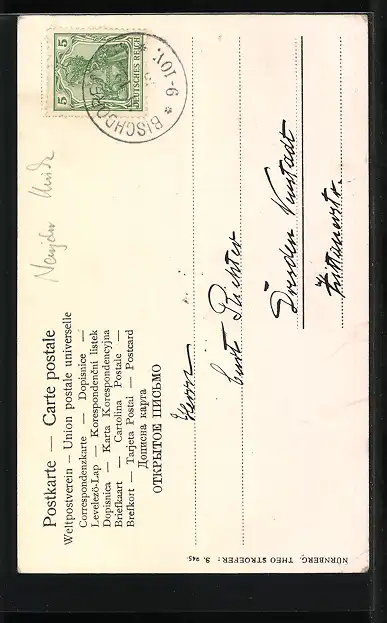 Postkarte — Carte postale
Weltpostverein – Union postale universelle
Correspondenzkarte — Dopisnice —
Levelező-Lap — Korespondenční listek
Dopisnica — Karta Korespondencyjna
Briefkaart — Cartolina Postale —
Brefkort — Tarjeta Postal — Postcard
Дописна карта
ОТКРЫТОЕ ПИСЬМО
5 DEUTSCHES REICH 5
BISCHDORF
6-10V.
Herrn
Curt Richter
Dresden Neustadt
Zittauerstr.
NÜRNBERG, THEO STROEFER: S. 945.